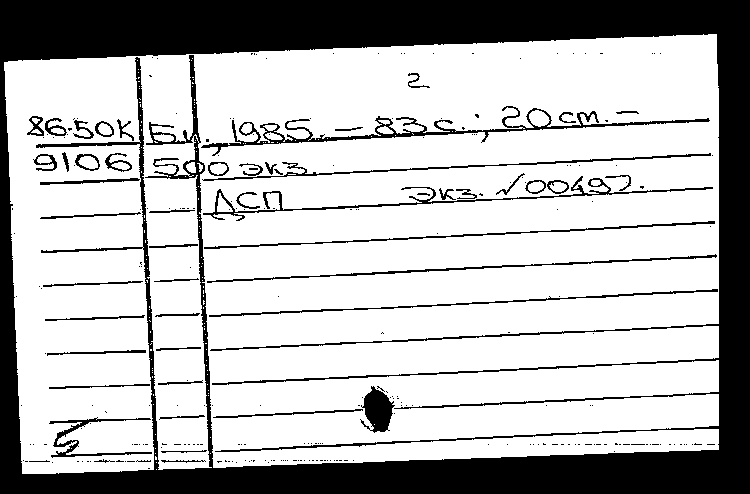 2
86-50К Б.и., 1985. — 83 с.; 20 cm. —
9106 500 экз.
ДСП экз. √00497.
5